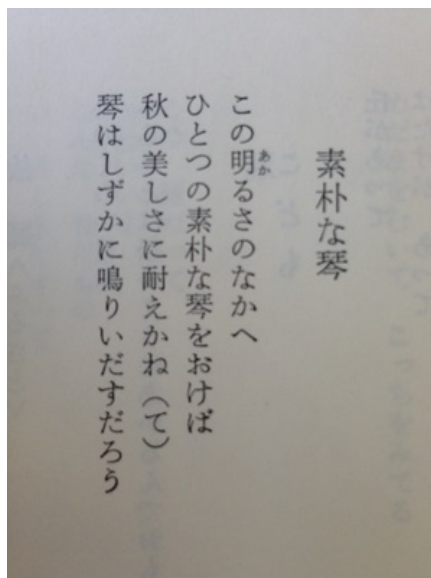 素朴な琴
この明るさのなかへ
ひとつの素朴な琴をおけば
秋の美しさに耐えかね（て）
琴はしずかに鳴りいだすだろう